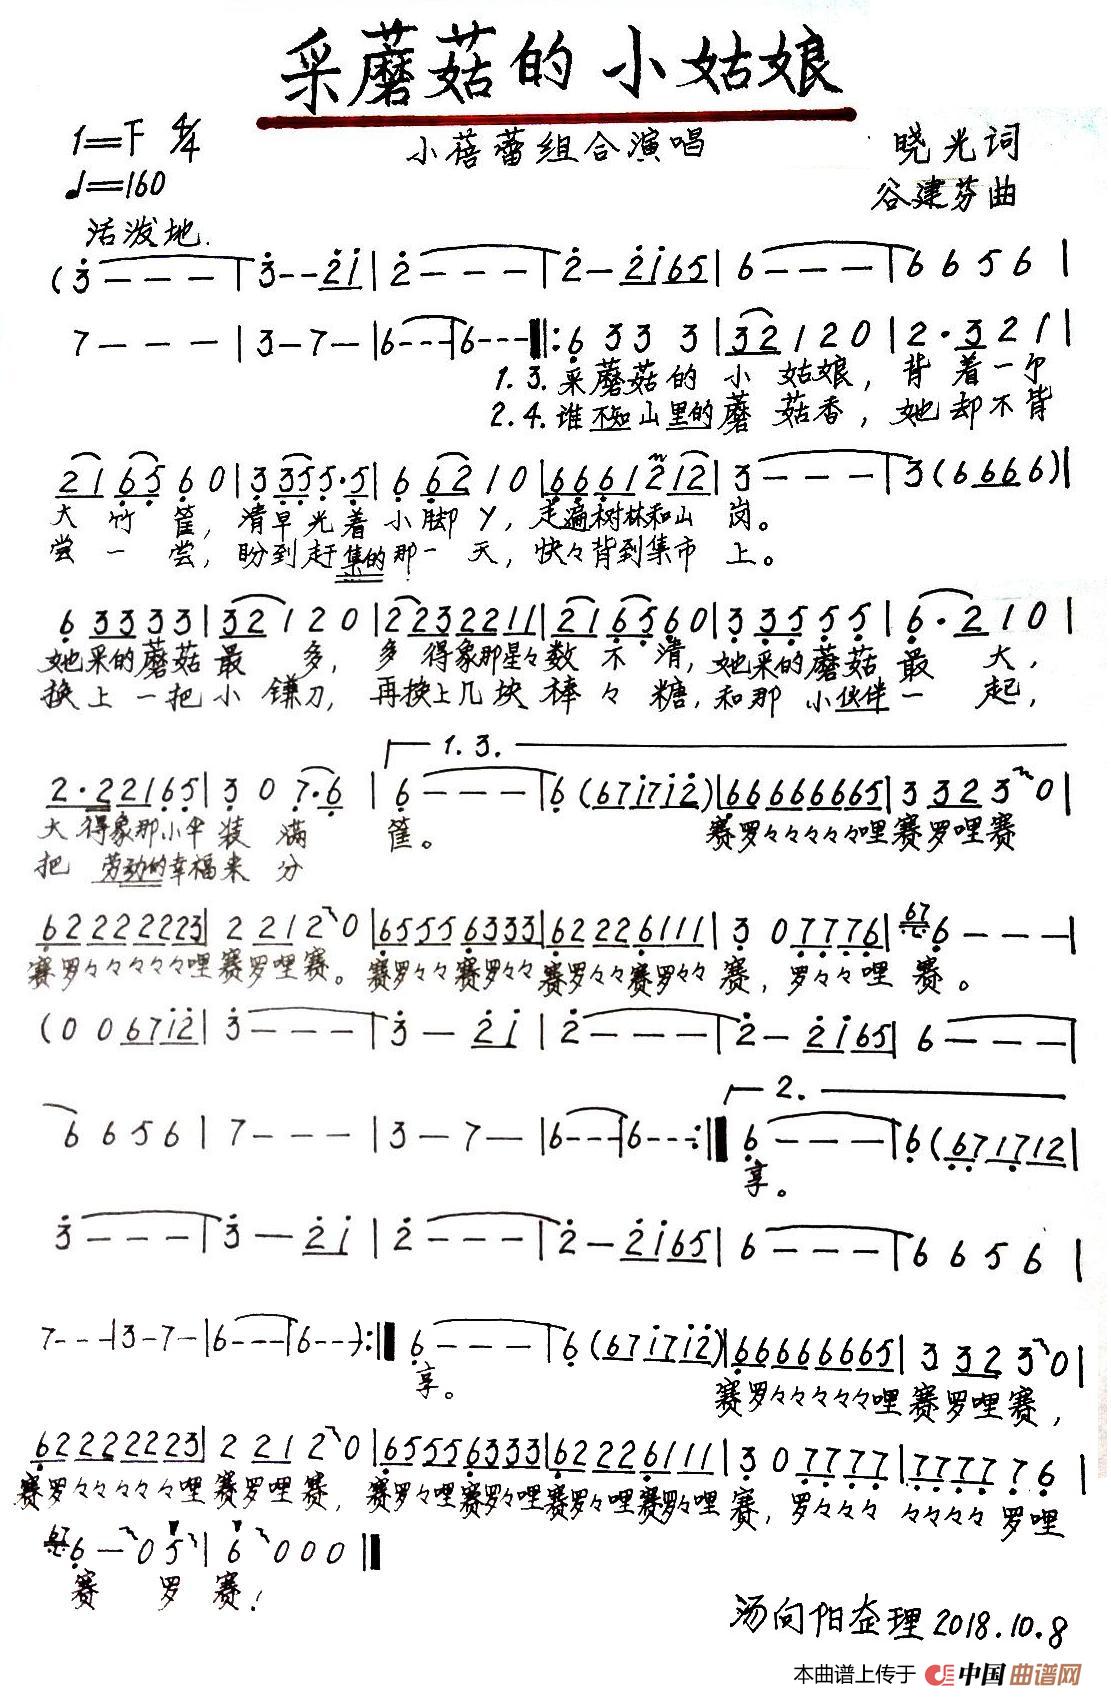 采蘑菇的小姑娘
1=下 4/4
小蓓蕾组合演唱
晓光词
♩=160
谷建芬曲
活泼地.
(3̇ - - - | 3̇ - - 2̇ 1̇ | 2̇ - - - | 2̇ - 2̇ 1̇ 6 5 | 6 - - - | 6 6 5 6 |
7 - - - | 3 - 7 - | 6 - - - | 6 - - - ‖: 6̣ 3 3 3 | 3 2 1 2 0 | 2 · 3 2 1 |
1. 3. 采蘑菇的 小 姑娘, 背 着一个
2. 4. 谁不知山里的蘑 菇香, 她却不肯
2 1 6̣ 5̣ 6̣ 0 | 3̣ 3̣ 5̣ 5̣ · 5̣ | 6̣ 6̣ 2 1 0 | 6̣ 6̣ 6̣ 1 2 1 2 | 3 - - - | 3 (6 6 6 6) |
大 竹 筐, 清早光着小脚丫, 走遍树林和山 岗。
尝 一 尝, 盼到赶集的那一天, 快々背到集市 上。
6̣ 3 3 3 3 3 | 3 2 1 2 0 | 2 2 3 2 2 1 1 | 2 1 6̣ 5̣ 6̣ 0 | 3̣ 3̣ 5̣ 5̣ 5̣ 5̣ | 6̣ · 2 1 0 |
她采的蘑菇最 多, 多 得象那星々数 不 清, 她采的蘑菇 最 大,
换上一把小镰刀, 再换上几块棒々糖, 和那 小伙伴一 起,
1. 3.
2 · 2 2 1 6̣ 5̣ | 3̣ 0 7̣ · 6̣ | 6̣ - - - | 6̣ (6 7 1̇ 7 1̇ 2̇) | 6̣ 6 6 6 6 6 6 5 | 3 3 2 3 0 |
大 得象那小伞装 满 筐。 赛罗々々々々々哩赛罗哩赛
把 劳动的幸福来 分
6̣ 2 2 2 2 2 2 3 | 2 2 1 2 0 | 6̣ 5 5 5 6̣ 3 3 3 | 6̣ 2 2 2 6̣ 1 1 1 | 3̣ 0 7̣ 7̣ 7̣ 6̣ | 67 6̣ - - - |
赛罗々々々々々哩赛罗哩赛。赛罗々々赛罗々々赛罗々々赛罗々々 赛, 罗々々哩 赛。
(0 0 6 7 1̇ 2̇ | 3̇ - - - | 3̇ - 2̇ 1̇ | 2̇ - - - | 2̇ - 2̇ 1̇ 6 5 | 6 - - - |
2.
6 6 5 6 | 7 - - - | 3 - 7 - | 6 - - - | 6 - - - :‖ 6̣ - - - | 6̣ (6̣ 7̣ 1 7̣ 1 2 |
享。
3̇ - - - | 3̇ - 2̇ 1̇ | 2̇ - - - | 2̇ - 2̇ 1̇ 6 5 | 6 - - - | 6 6 5 6 |
7 - - - | 3 - 7 - | 6 - - - | 6 - - -) :‖ 6̣ - - - | 6̣ (6 7 1̇ 7 1̇ 2̇) | 6̣ 6 6 6 6 6 6 5 | 3 3 2 3 0 |
享。 赛罗々々々々々哩赛罗哩赛,
6̣ 2 2 2 2 2 2 3 | 2 2 1 2 0 | 6̣ 5 5 5 6̣ 3 3 3 | 6̣ 2 2 2 6̣ 1 1 1 | 3̣ 0 7̣ 7̣ 7̣ 7̣ | 7̣ 7̣ 7̣ 7̣ 7̣ 6̣ |
赛罗々々々々々哩赛罗哩赛, 赛罗々哩赛罗々哩赛罗々哩赛罗々哩 赛, 罗々々々 々々々々 罗哩
67 6̣ - 0 5̣ | 6̣ 0 0 0 ‖
赛 罗 赛!
汤向阳整理 2018.10.8
本曲谱上传于 中国曲谱网